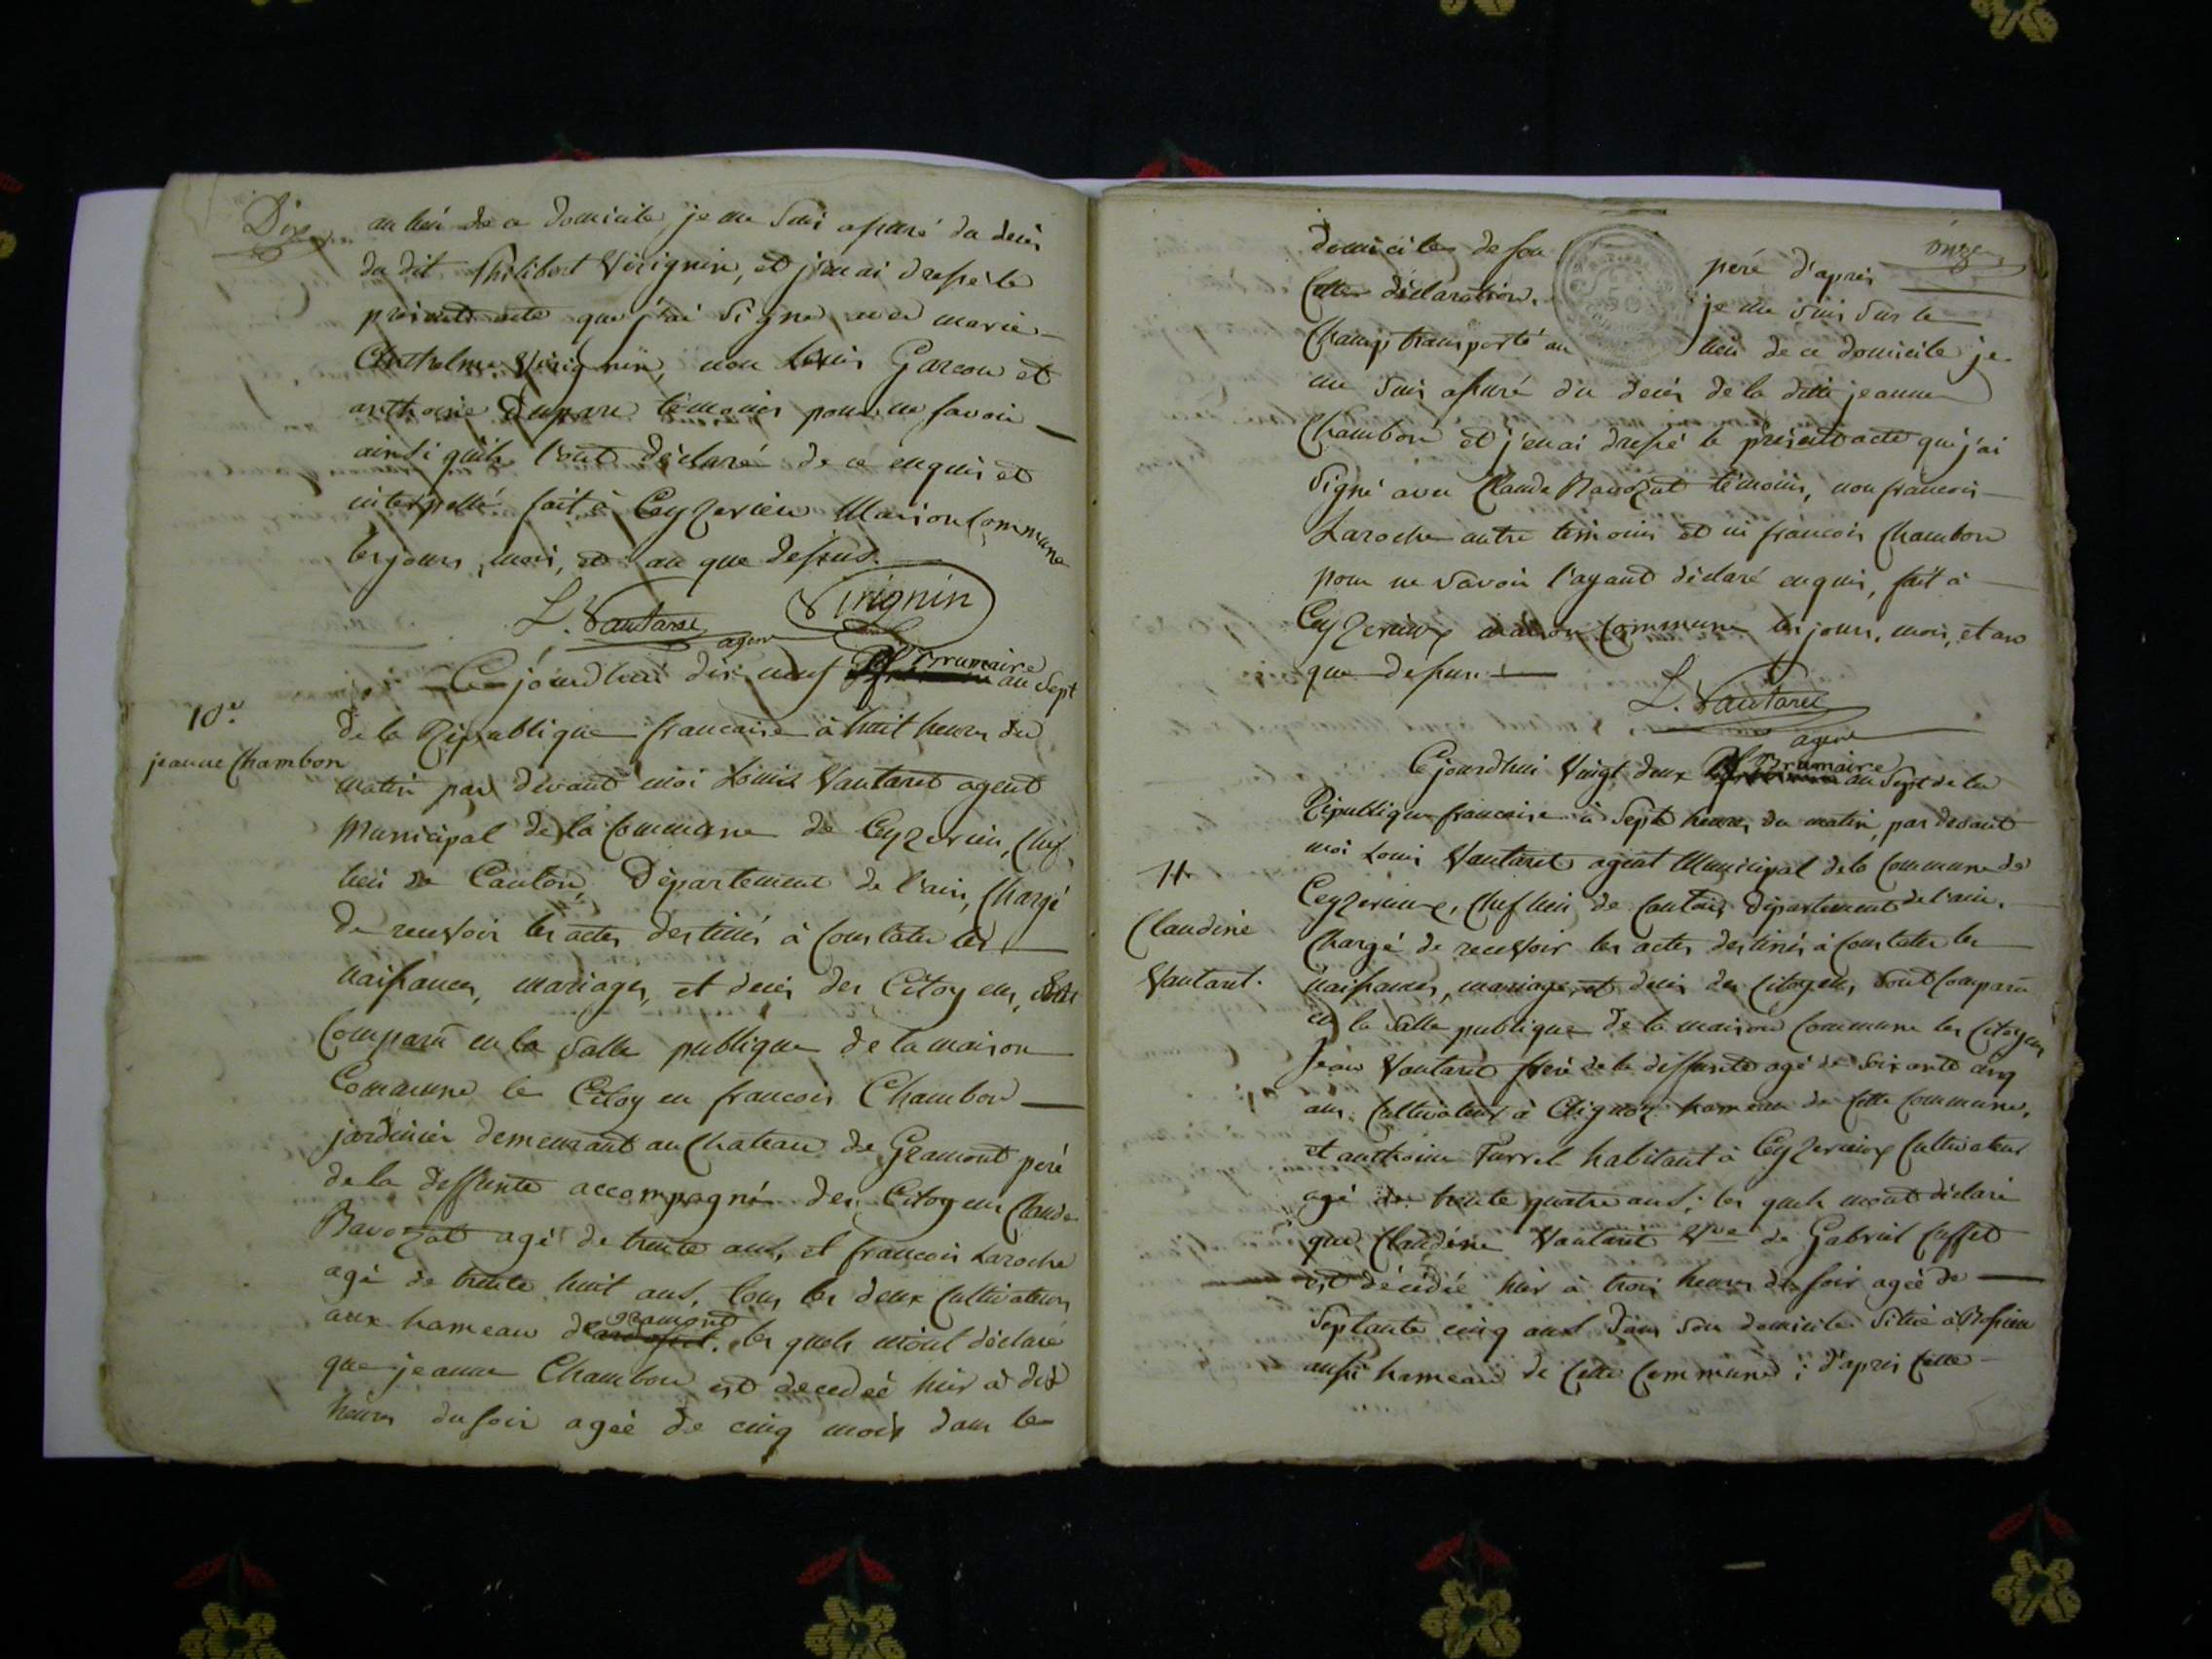 Dix
au lieu de ce domicile, je me suis assuré du decès
du dit Philibert Virignin, et j'en ai dressé le
présent acte que j'ai signé avec marie
Anthelme Virignin, non Louis Garçon et
anthoine Dupare témoins pour ne savoir
ainsi quils l'ont déclaré de ce enquis et
interpellé fait à Ceyzerieu Maison Commune
les jours, mois, et an que dessus.
L. Vautaret agent
Virignin
10e
jeanne Chambon
Cejourdhui dix neuf Brumaire an sept
de la République francaise à huit heures du
matin par devant moi Louis Vautaret agent
Municipal de la Commune de Ceyzerieu, Chef
lieu de Canton, Département de l'ain, Chargé
de recevoir les actes destinés à Constater les
naissances, mariages, et decès des Citoyens, sont
Comparu en la salle publique de la maison
Commune le Citoyen francois Chambon
jardinier demeurant au Chateau de Gramont peré
de la deffunte accompagné des Citoyens Claude
Ravozat agé de trente ans, et francois Laroche
agé de trente huit ans, tous les deux Cultivateurs
aux hameau de Gramont les quels m'ont déclaré
que jeanne Chambon est decedéé hier à dix
heures du soir agéé de cinq mois dans le
onze
domicile de son peré d'après
Cette déclaration, je me suis sur le
Champ transporté au lieu de ce domicile je
me suis assuré du decès de la ditte jeanne
Chambon et j'en ai dressé le présent acte que j'ai
signé avec Claude Ravozat témoins, non francois
Laroche autre temoins et ni francois Chambon
pour ne savoir l'ayant déclaré enquis, fait à
Ceyzerieux maison Commune les jours, mois, et an
que dessus.
L. Vautaret
agent
11e
Claudiné
Vautaret.
Cejourdhui vingt deux Brumaire an sept de la
République francaise à sept heures du matin, par devant
moi Louis Vautaret agent Municipal de la Commune de
Ceyzerieux, Chef lieu de Canton, Département de l'ain,
Chargé de recevoir les actes destinés à Constater les
naissances, mariages, et decès des Citoyens, sont Comparu
en la salle publique de la maison Commune les Citoyens
Jean Vautaret freré de la deffunte agé de soixante cinq
ans, Cultivateur à Avignon hameau de Cette Commune,
et anthoine Furrel habitant à Ceyzerieux Cultivateur
agé de trente quatre ans; les quels m'ont déclaré
que Claudine Vautaret Vve de Gabriel Cusset
est décédée hier à trois heures du soir agéé de
Septante cinq ans dans son domicile situé à
aussi hameau de Cette Commune; d'après Cette